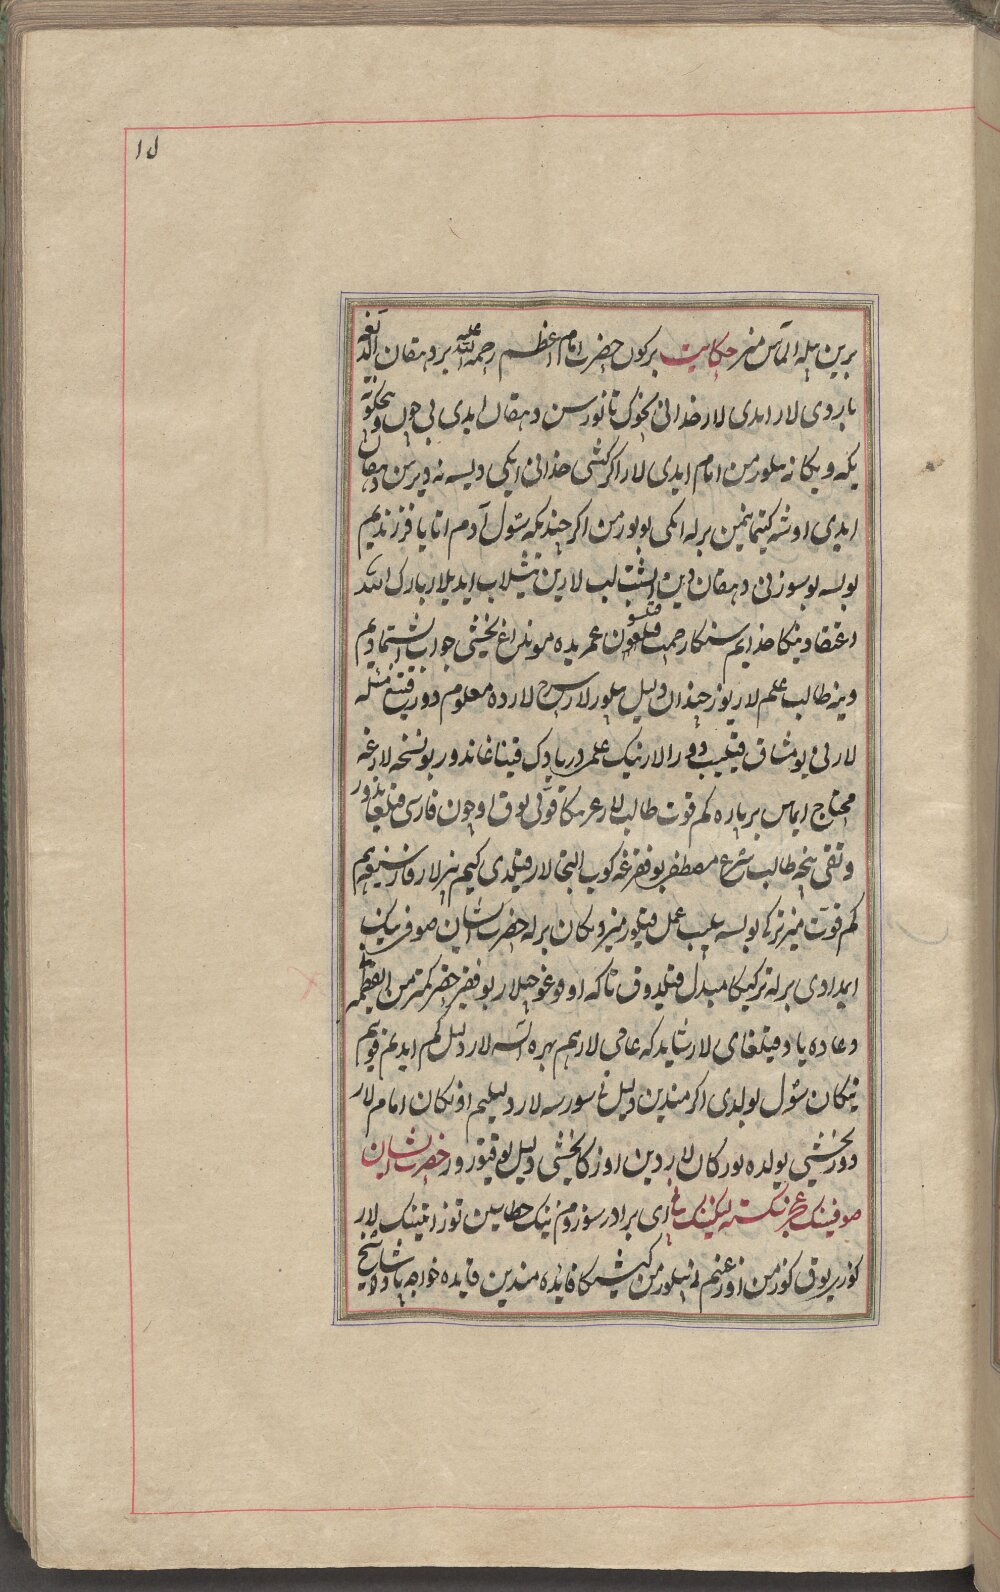 برین بیله الماس میز حکایت برکون حضرت امام اعظم رحمة الله علیه بر دهقان الدیغه
باردی لار ایدی لار خدانی نجوک تانورسن دهقان ایدی بی چون و بیچکونه
یکه و یکانه بیلورمن امام ایدی لار اکر کشی خدانی ایکی دیسه نه دیرسن دهقان
ایدی اوشه کیتمانیمن برله ایکی بولورمن اکر چندیکه سول آدم اتا یا فرزندیم
بولسه بو سوزنی دهقان دین ایشتب لب لارین تیشلاب ایدیلار بارک الله
اعتقادینکا خدایم سنکا رحمت قیلسون عمریده موندن اغ یخشی جواب ایشتمادیم
وینه طالب علم لار یوز چندان دلیل بیلورلار شرح لارده معلوم دور قتیغ مسئله
لارنی یومشاق قیلیب دور الارنیک علم دریادک قیناغاندور بو نسخه لارغه
محتاج ایماس بر پاره کم قوت طالب لار عربیکا قوتی یوق اوچون فارسی قیلغاندور
و تقی نیچه طالب شرع مصطفی بو فقیرغه کوب التجا لار قیلدی کیم بیزلار فارسیغه هم
کم قوت میز ترکی بولسه بیلیب عمل قیلورمیز دیکان برله حضرت ایشان صوفی نینک
امدادی برله ترکیکا مبدل قیلدوق تاکه اوقوغوچیلار بو فقیر حقیر کمترمن
دعاده یاد قیلغای لار شاید که عامی لار هم بهره آلسه لار دلیل کم ایدیم قویم
نیکان سول بولدی اکر مندین دلیل نی سورسه لار دلیلیم اوتکان امام لار
دور یخشی یولده یورکان لاردین اوزکا یخشی دلیل یوقتورور حضرت ایشان
صوفینینک عجز نکسته لیکینک ای برادر سوزوم نینک خطاسین توزاتینک لار
کوزیر یوق کوزمن اوز عیبم نی بیلورمن کیشیکا فایده مندین فایده خواجه بهاوالدین شاشیخ
۱۵